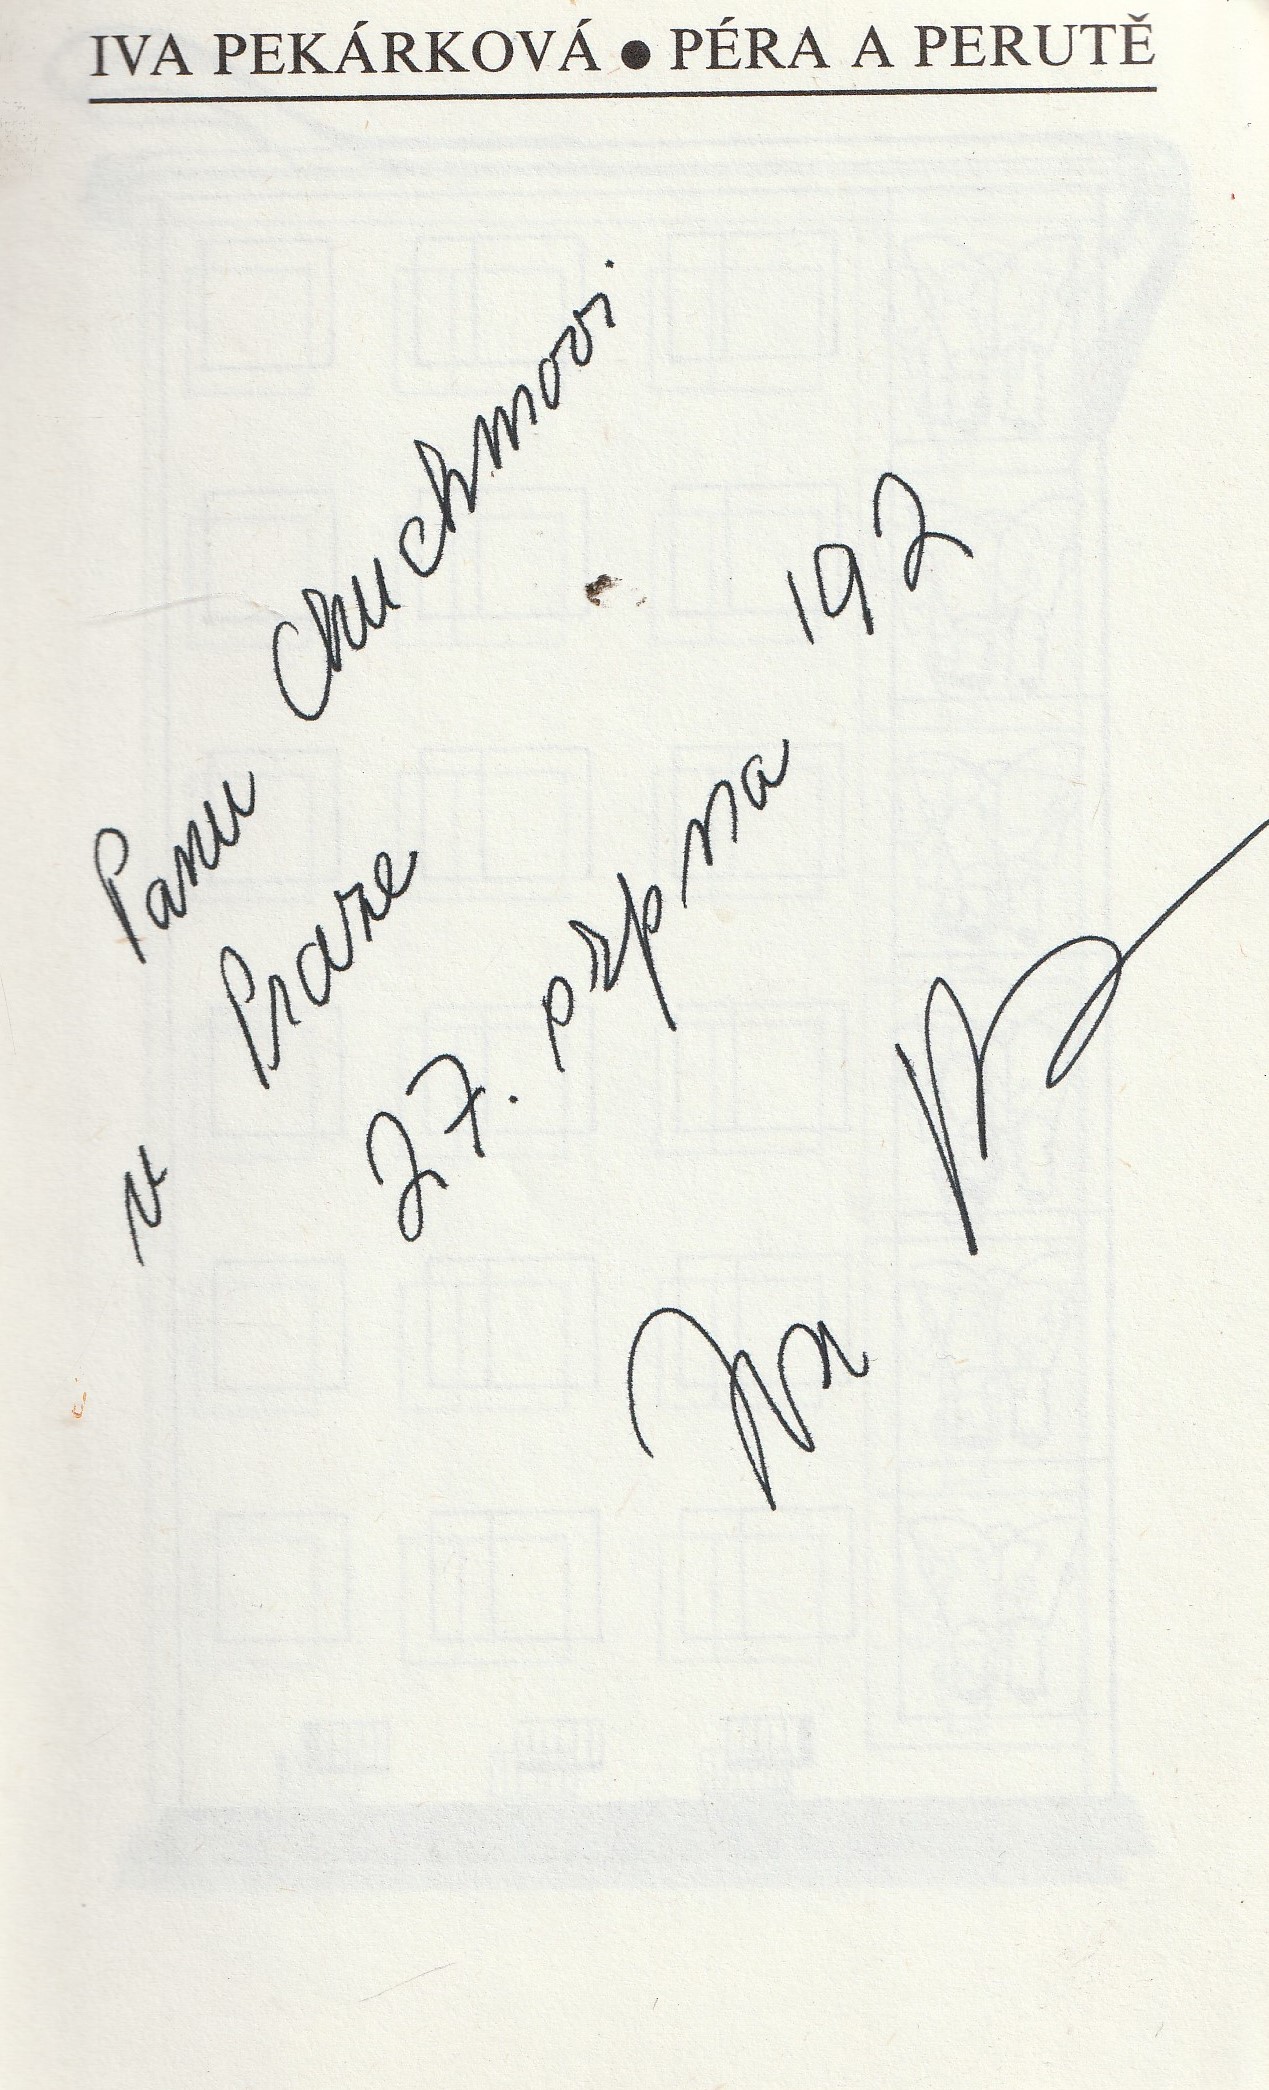 IVA PEKÁRKOVÁ ● PÉRA A PERUTĚ
Panu Chuchmovi
v Praze
27. srpna 192
Iva